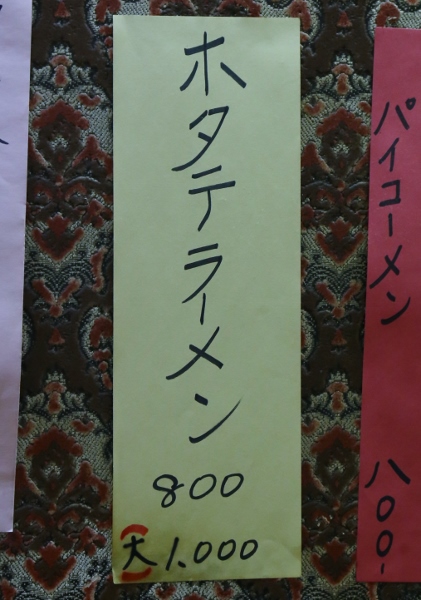 パイコーメン
八〇〇-
ホタテラーメン
800
大 1.000